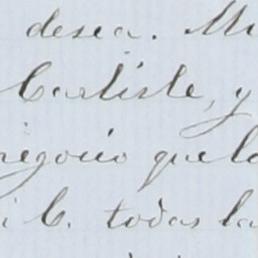 desea. Mi
Carlisle, y
negocio que la
i C. todas la